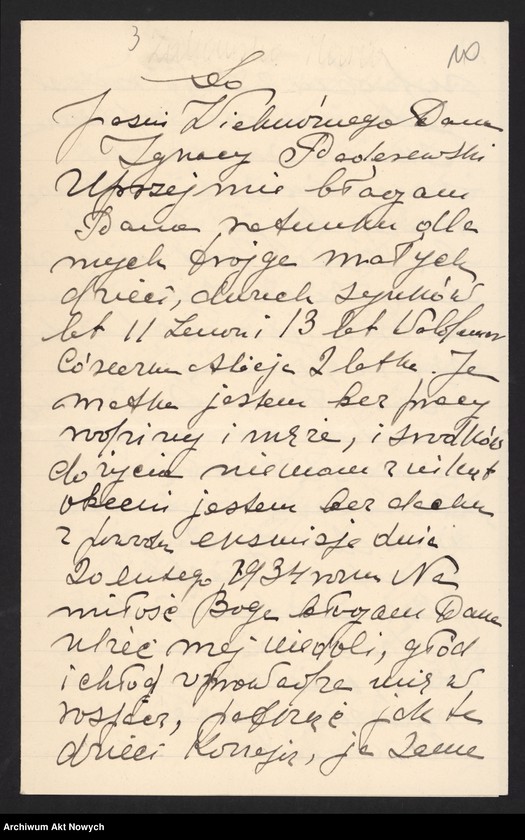 3
Do
Jaśni Wielmórnego Pana
Ignacy Paderewski
Uprzejmie błagam
Pana ratunku dla
mych trojga małych
dzieci, dwuch synków
lat 11 Zenon i 13 lat
córeczka Alicja 2 latka. Ja
matka jestem bez pracy
rodziny i męża, i srodków
do życia niemam znikąt
obecni jestem bez dachu
z powodu eksmisje dnia
20 lutego 1934 roku Na
miłość Boga błagam Pana
ulżeć mej niedoli, głód
i chłod wprowadza mię w
rospacz, patrzeć jak te
dzieci, ja sama
Archiwum Akt Nowych